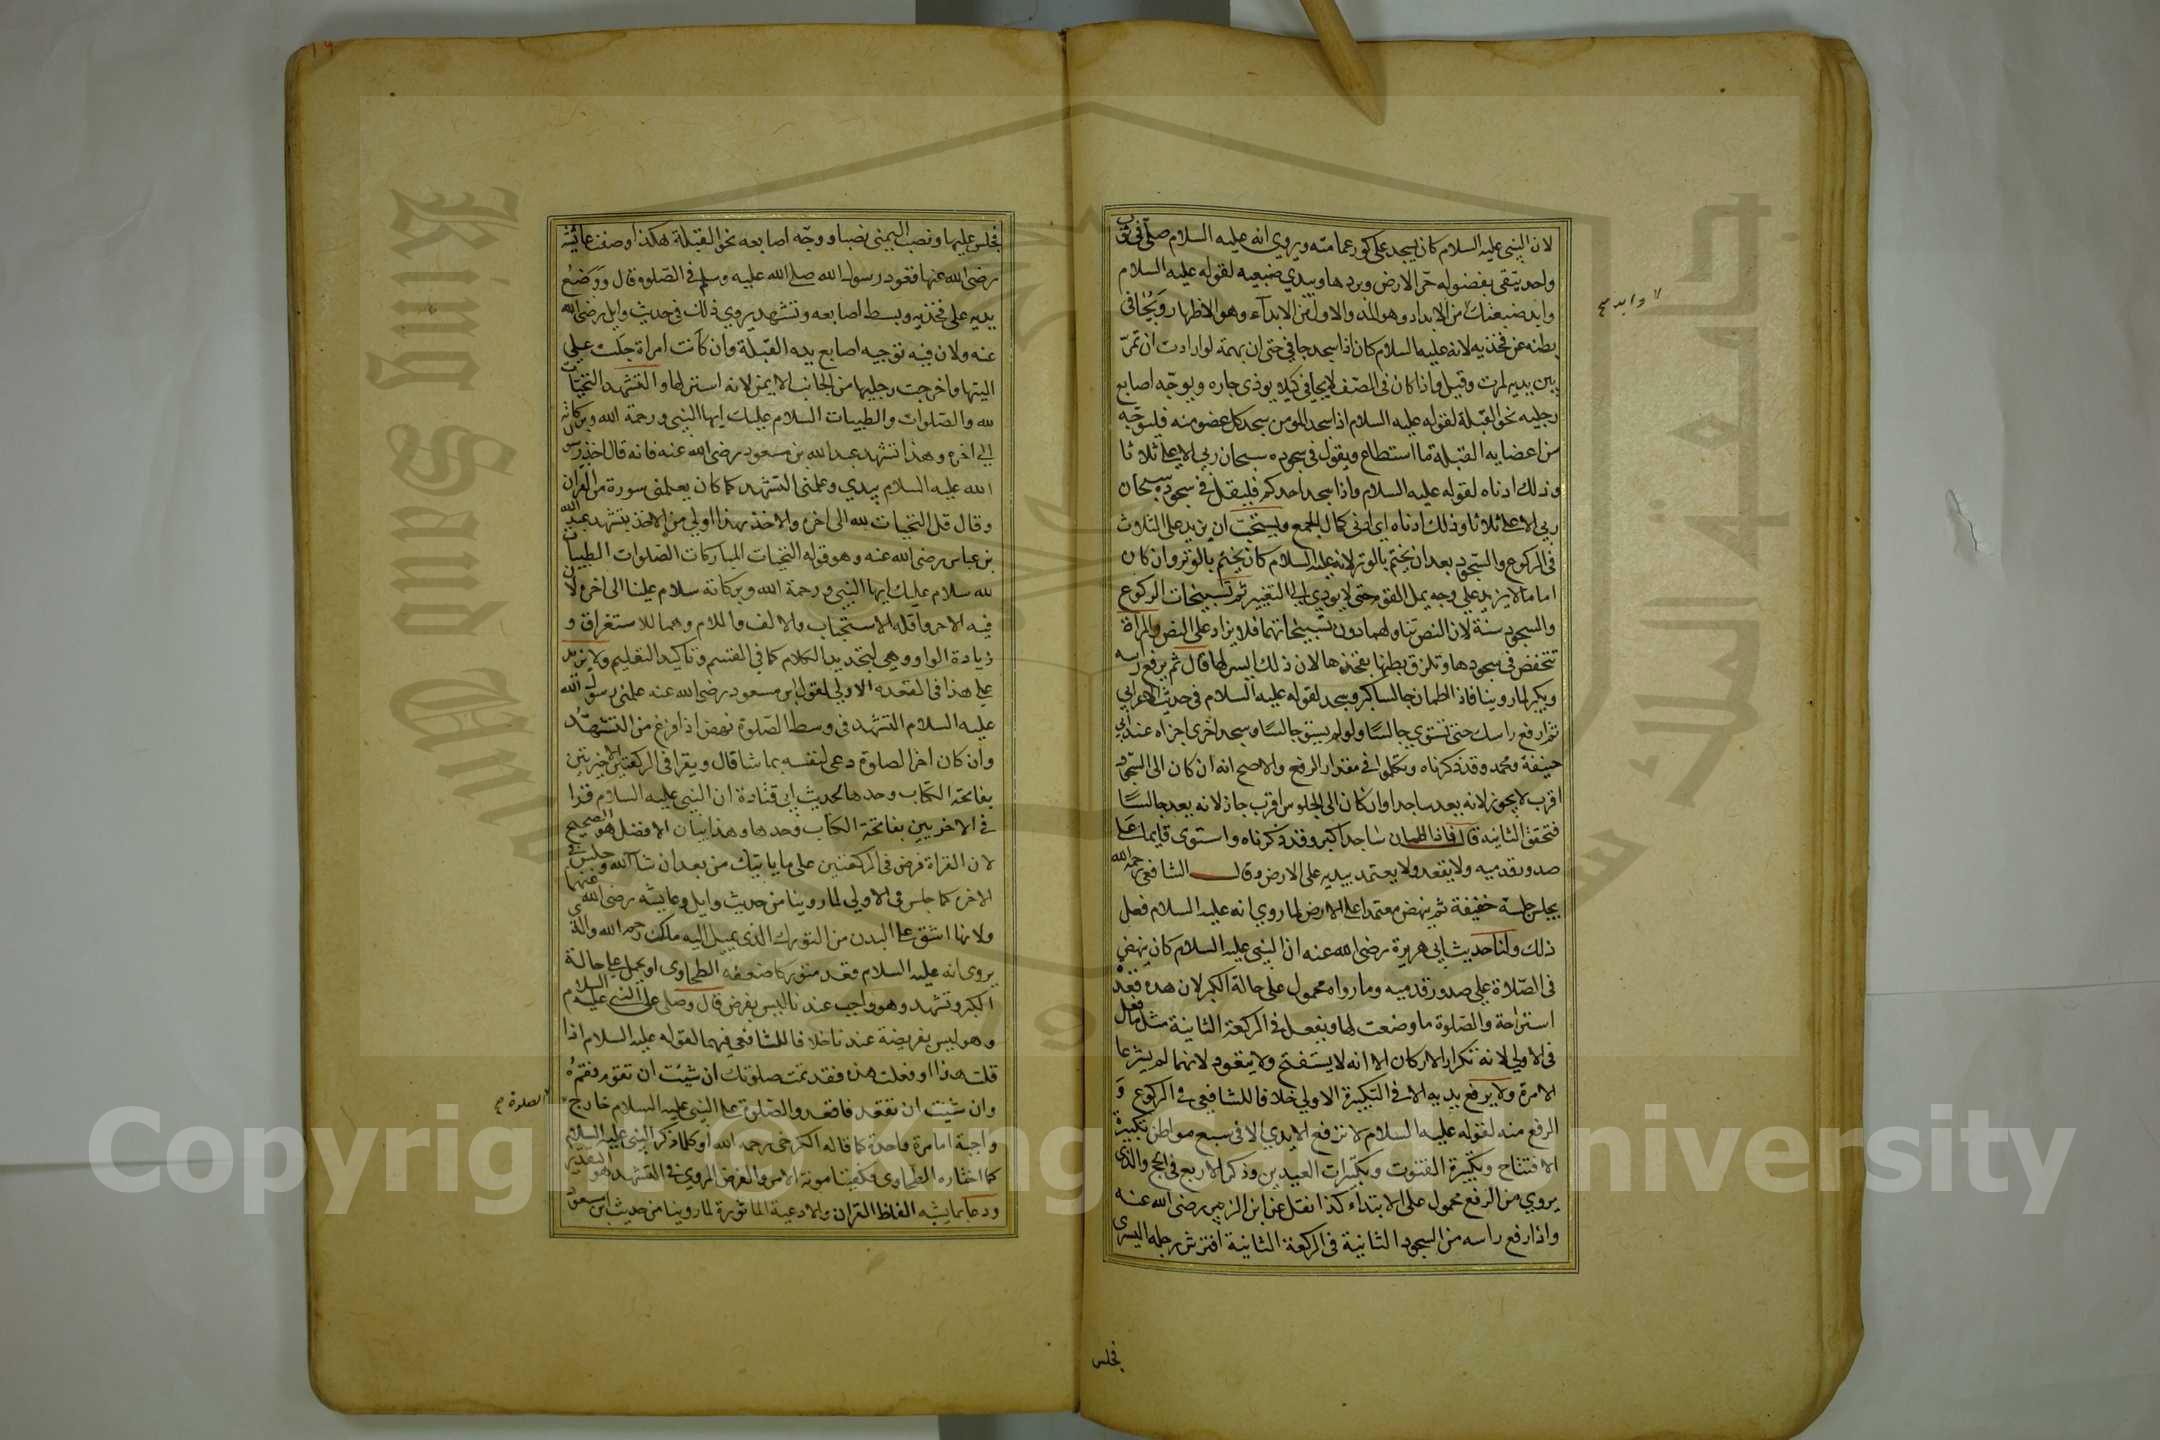 لان النبي عليه السلام كان يسجد على كور عمامته ويروي انه عليه السلام صلى في ثوب
واحد يتقى بفضوله حر الارض وبردها ويبدي ضبعيه لقوله عليه السلام
وابد ضبعيك من الابداد وهو المد والاول من الابدآء وهو الاظهار ويجافي
لا وابد صح
بطنه عن فخذيه لانه عليه السلام كان اذا سجد جافي حتى ان بهمة لوارادت ان تمر
بين يديه لمرت وقيل واذا كان في الصف لا يجافي كيلا يوذي جاره ويوجه اصابع
رجليه نحو القبلة لقوله عليه السلام اذا سجد المومن سجد كل عضو منه فليوجه
من اعضايه القبلة ما استطاع ويقول في سجوده سبحان ربي الاعلى ثلاثا
وذلك ادناه لقوله عليه السلام واذا سجد احدكم فليقل في سجوده سبحان
ربي الاعلى ثلاثا وذلك ادناه اي ادنى كمال الجمع ويستحب ان يزيد على الثلاث
في الركوع والسجود بعد ان يختم بالوتر لانه عليه السلام كان يختم بالوتر وان كان
اماما لا يزيد على وجه يمل القوم حتى لا يودي الى التنفير ثم تسبيحات الركوع
والسجود سنة لان النص تناولهما دون تسبيحاتهما فلا يزاد على النص والمرأة
تنخفض في سجودها وتلزق بطنها بفخذها لان ذلك ايسر لها قال ثم يرفع راسه
ويكبر لما روينا فاذا اطمان جالسا كبر وسجد لقوله عليه السلام في حديث الاعرابي
ثم ارفع راسك حتى تستوي جالسًا ولو لم يستو جالسًا وسجد اخرى اجزاه عند ابي
حنيفة ومحمد وقد ذكرناه وتكلموا في مقدار الرفع والاصح انه ان كان الى السجود
اقرب لا يجوز لانه يعد ساجدا وان كان الى الجلوس اقرب جاز لانه يعد جالسًا
فتحقق الثانية قال فاذا اطمان ساجدا كبر وقد ذكرناه واستوى قايما على
صدور قدميه ولا يقعد ولا يعتمد بيديه على الارض وقال الشافعي رحمه الله
يجلس جلسة خفيفة ثم ينهض معتمدا على الارض لما روي انه عليه السلام فعل
ذلك ولنا حديث ابي هريرة رضي الله عنه ان النبي عليه السلام كان ينهض
في الصلاة على صدور قدميه وما رواه محمول على حالة الكبر لان هذه قعدة
استراحة والصلوة ما وضعت لها ويفعل في الركعة الثانية مثل ما فعل
في الاولى لانه تكرار الاركان الا انه لا يستفتح ولا يتعوذ لانهما لم يشرعا
الا مرة ولا يرفع يديه الا في التكبيرة الاولى خلافا للشافعي في الركوع و
الرفع منه لقوله عليه السلام لا ترفع الايدي الا في سبع مواطن تكبيرة
الافتتاح وتكبيرة القنوت وتكبيرات العيدين وذكر الاربع في الحج والذي
يروي من الرفع محمول على الابتداء كذا نقل عن ابن الزبير رضي الله عنه
واذا رفع راسه من السجود الثانية في الركعة الثانية افترش رجله اليسرى
فجلس
فجلس عليها ونصب اليمنى نصبا ووجه اصابعه نحو القبلة هكذا وصفت عائشة
رضي الله عنها قعود رسول الله صلى الله عليه وسلم في الصلوة قال ووضع
يديه على فخذيه وبسط اصابعه وتشهد يروي ذلك في حديث وايل رضي الله
عنه ولان فيه توجيه اصابع يده القبلة وان كانت امراة جلست على
اليتها واخرجت رجليها من الجانب الايمن لانه استر لها والتشهد التحيات
لله والصلوات والطيبات السلام عليك ايها النبي ورحمة الله وبركاته
الى اخره وهذا تشهد عبد الله بن مسعود رضي الله عنه فانه قال اخذ رسول
الله عليه السلام بيدي وعلمني التشهد كما كان يعلمني سورة من القران
وقال قل التحيات لله الى اخره والاخذ بهذا اولى من الاخذ بتشهد عبد الله
بن عباس رضي الله عنه وهو قوله التحيات المباركات الصلوات الطيبات
لله سلام عليك ايها النبي ورحمة الله وبركاتة سلام علينا الى اخره لان
فيه الامر واقله الاستحباب والالف واللام وهما للاستغراق و
زيادة الواو وهي لتجديد الكلام كما في القسم وتاكيد التعليم ولا يزيد
على هذا في القعدة الاولى لقول ابن مسعود رضي الله عنه علمني رسول الله
عليه السلام التشهد في وسط الصلوة نهض اذا فرغ من التشهد
وان كان اخر الصلوة دعى لنفسه بما شا قال ويقرا في الركعتين الاخيرتين
بفاتحة الكتاب وحدها لحديث ابي قتادة ان النبي عليه السلام قرا
في الاخريين بفاتحة الكتاب وحدها وهذا بيان الافضل هو الصحيح
لان القراة فرض في الركعتين على ما ياتيك من بعد ان شا الله وجلس في
الاخرة كما جلس في الاولى لما روينا من حديث وايل وعايشه رضي الله عنهما
ولانها اشق على البدن من التورك الذي يميل اليه مالك رحمه الله والذي
يروى انه عليه السلام قعد متوركا ضعفه الطحاوى او يحمل على حالة
الكبر وتشهد وهو واجب عندنا ليس بفرض قال وصلى على النبي عليه السلام
وهو ليس بفريضة عندنا خلافا للشافعي فيهما لقوله عليه السلام اذا
قلت هذا او فعلت هذه فقد تمت صلوتك ان شيت ان تقوم فقم
وان شيت ان تقعد فاقعد والصلوة على النبي عليه السلام خارج
الصلوة صح
واجبة اما مرة واحدة كما قاله الكرخي رحمه الله او كلما ذكر النبي عليه السلام
كما اختاره الطحاوى فكفينا مونة الامر والفرض المروي في التشهد هو التقدير
ودعا بما يشبه الفاظ القران والادعية الماثورة لما روينا من حديث ابن مسعود
Copyright © King Saud University
King Saud University
جامعة الملك سعود